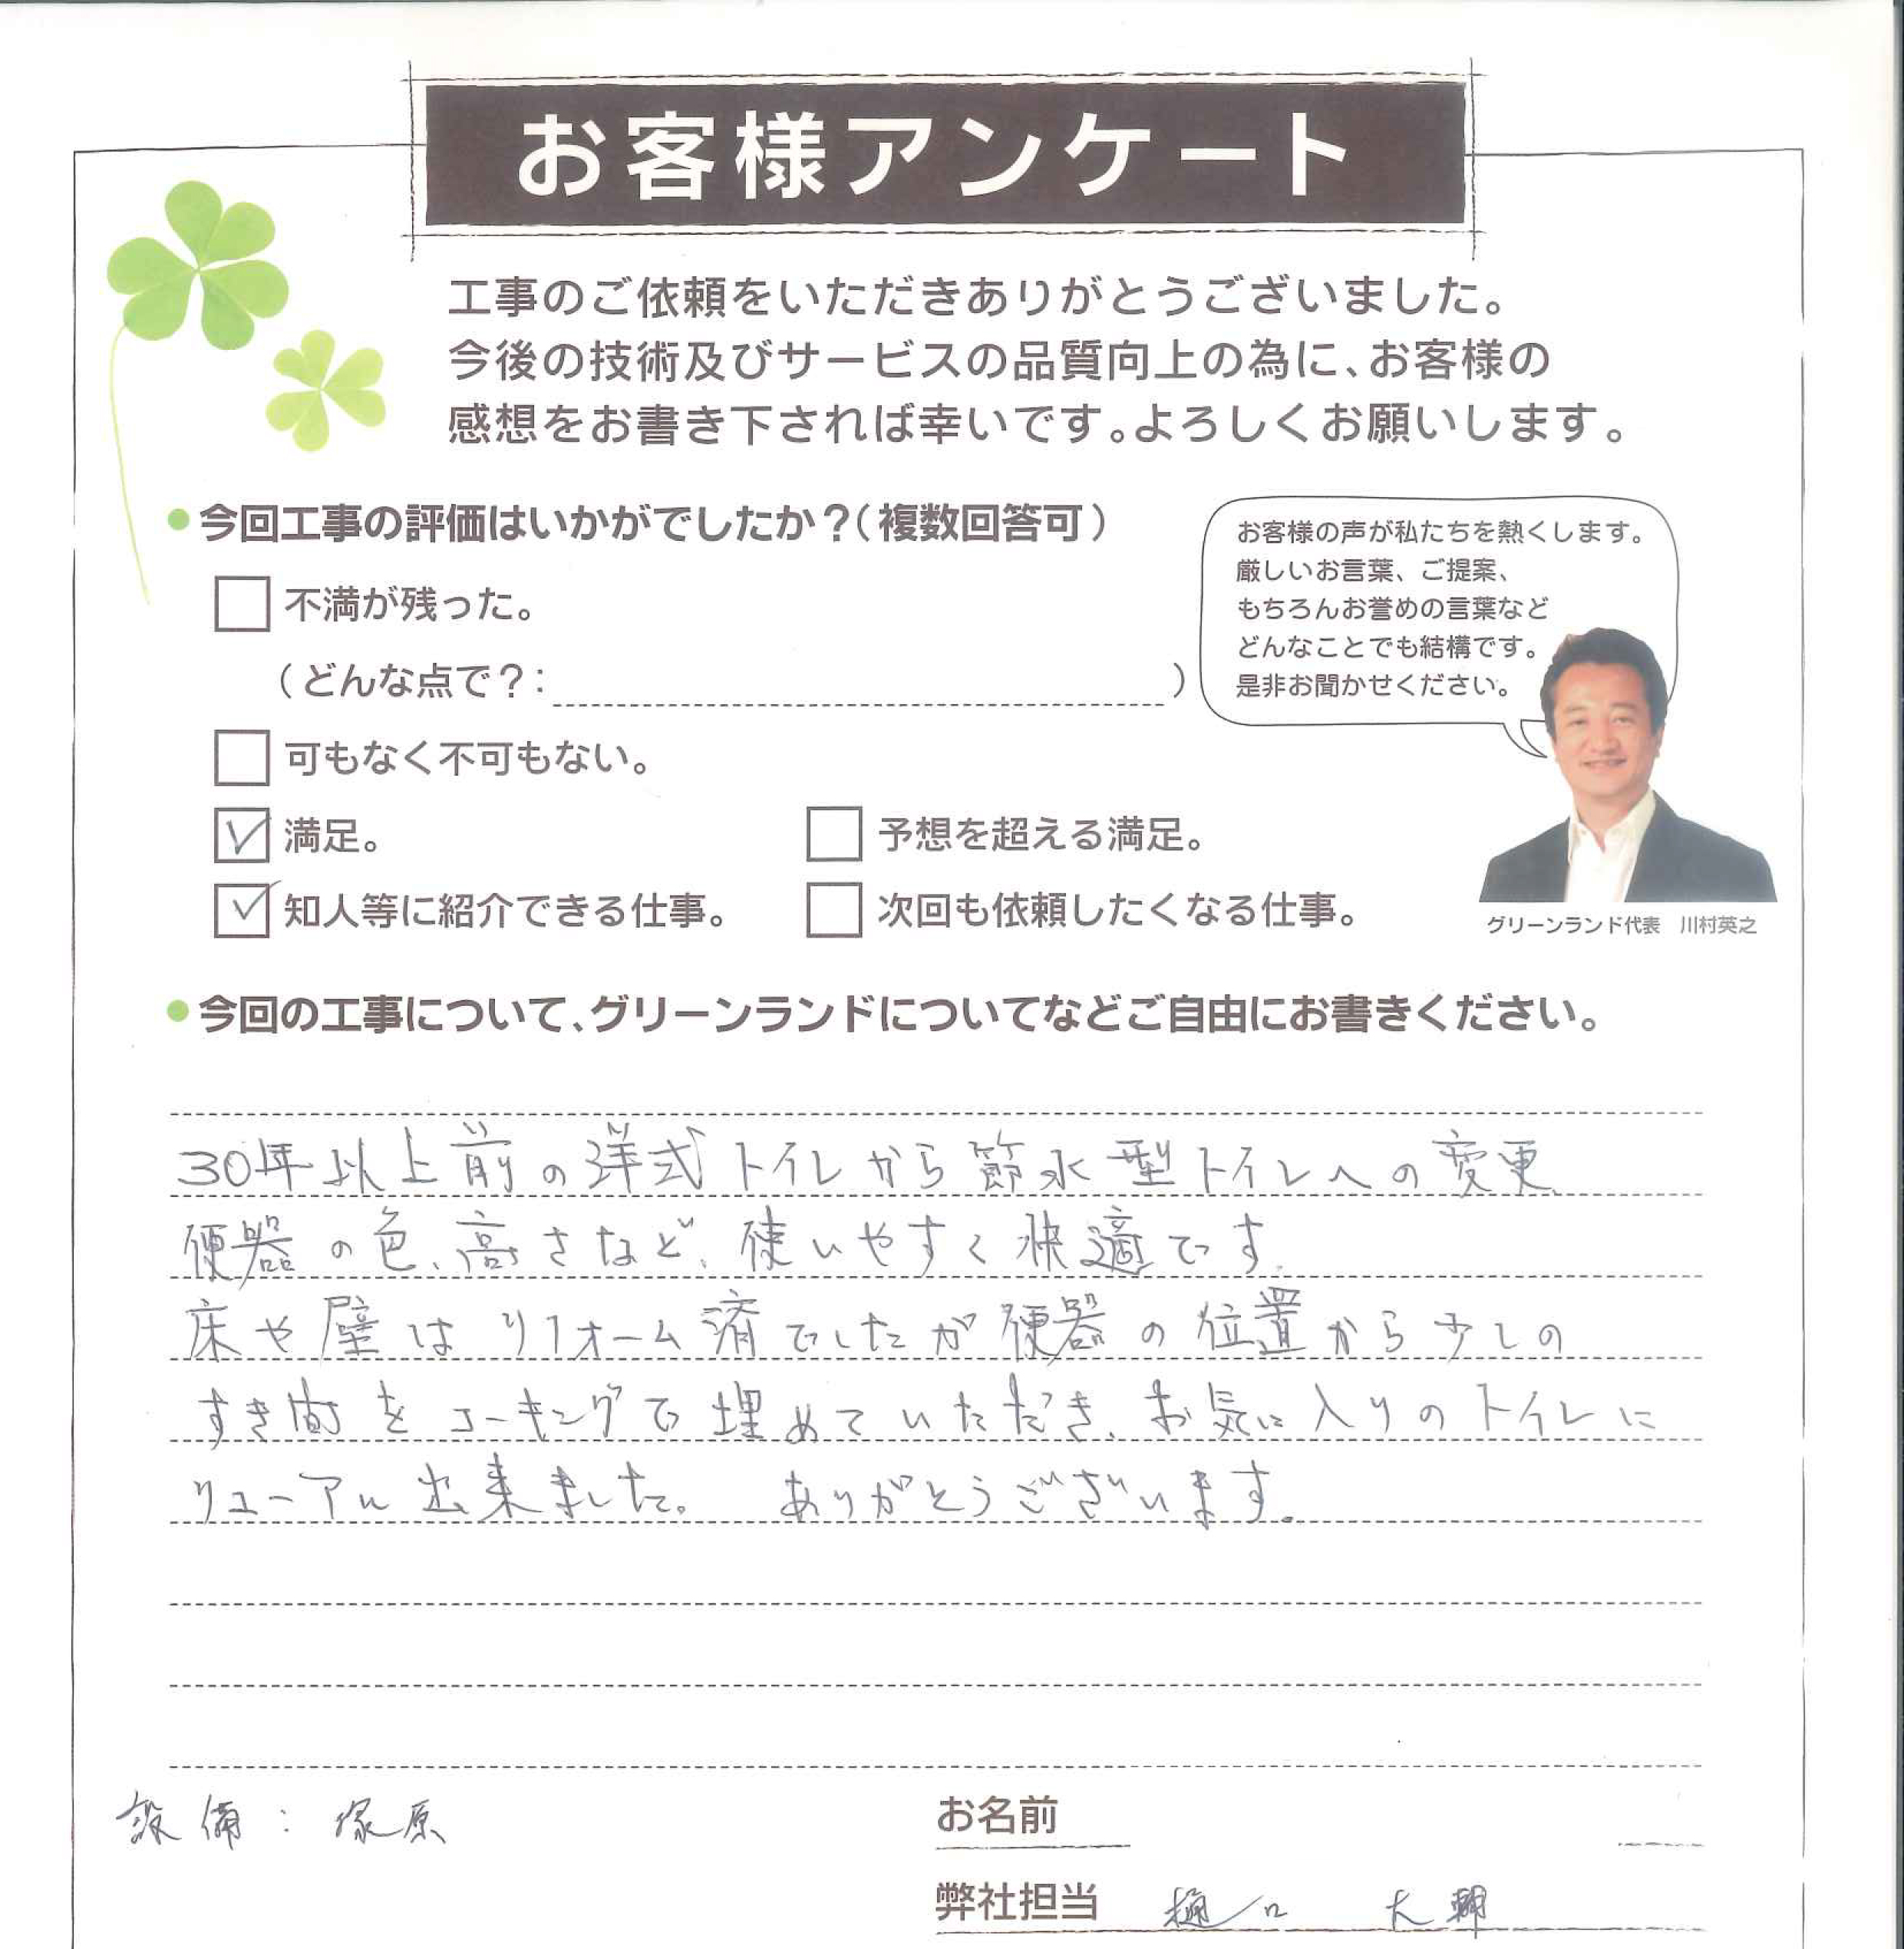 お客様アンケート
工事のご依頼をいただきありがとうございました。
今後の技術及びサービスの品質向上の為に、お客様の
感想をお書き下されば幸いです。よろしくお願いします。
●今回工事の評価はいかがでしたか？（複数回答可）
不満が残った。
（どんな点で？：　　　）
可もなく不可もない。
満足。
予想を超える満足。
知人等に紹介できる仕事。
次回も依頼したくなる仕事。
お客様の声が私たちを熱くします。
厳しいお言葉、ご提案、
もちろんお誉めの言葉など
どんなことでも結構です。
是非お聞かせください。
グリーンランド代表　川村英之
●今回の工事について、グリーンランドについてなどご自由にお書きください。
30年以上前の洋式トイレから節水型トイレへの変更
便器の色、高さなど、使いやすく快適です。
床や壁はリフォーム済でしたが便器の位置から少しの
すき間をコーキングで埋めていただき、お気に入りのトイレに
リューアル出来ました。　ありがとうございます。
設備：塚原
お名前
弊社担当　樋口　大輔